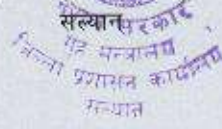 सल्यान
सरकार
गृह मन्त्रालय
जिल्ला प्रशासन कार्यालय
सल्यान